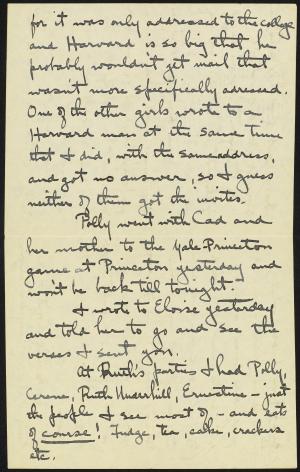 for it was only addressed to the college
and Harvard is so big that he
probably wouldn't get mail that
wasn't more specifically adressed.
One of the other girls wrote to a
Harvard man at the same time
that I did, with the same address,
and got no answer, so I guess
neither of them got the invites.
Polly went with Cad and
her mother to the Yale-Princeton
game at Princeton yesterday and
won't be back till tonight.
I wrote to Eloise yesterday
and told her to go and see the
verses I sent you.
At Ruth's parties I had Polly,
Ruth Underhill, Ernestine - just
the people I see most of - and eats
of course! Fudge, tea, cake, crackers
etc.